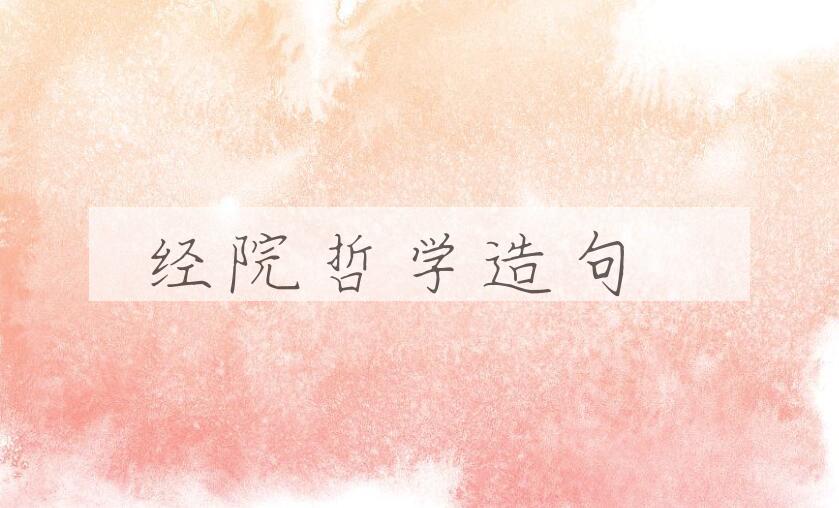 经院哲学造句